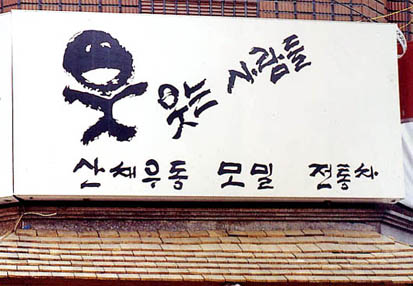 웃는 사람들
산채우동 모밀 전통차